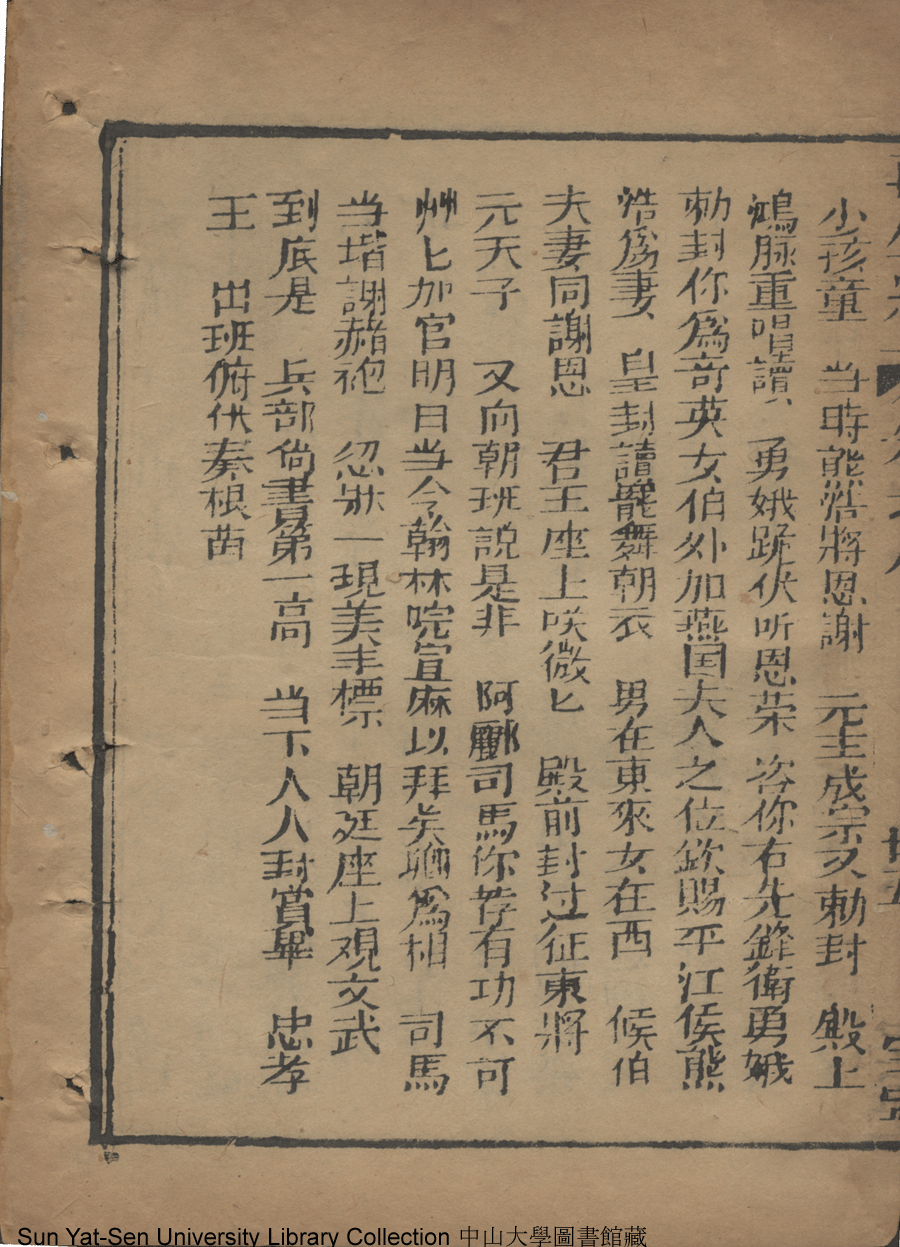 小孩童　当時熊浩將恩謝　元主成宗又勅封　殿上
鴻脉重唱讀　勇娥跪伏听恩荣　咨你右先鋒衛勇娥
勅封你為竒英女伯外加燕囯夫人之位欽賜平江侯熊
浩為妻　皇封讀罷舞朝衣　男在東來女在西　候伯
夫妻同謝恩　君王座上咲微匕　殿前封过征東將
元天子　又向朝班説是非　阿酈司馬你荐有功不可
艸匕加官明日当令翰林院宣麻以拜矣聊為相　司馬
当堦謝赭袍　忽然一現美丰標　朝廷座上观文武
到底是　兵部尙書第一高　当下人人封賞畢　忠孝
王　出班俯伏奏根苗
Sun Yat-Sen University Library Collection 中山大學圖書館藏